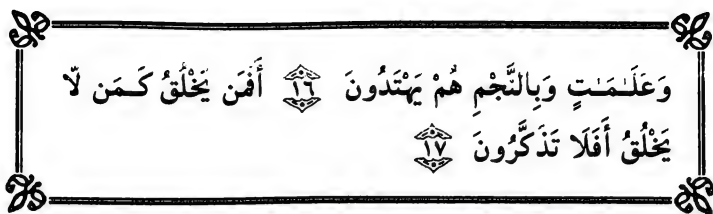 وَعَلَـٰمَـٰتٍ وَبِالنَّجْمِ هُمْ يَهْتَدُونَ ١٦ أَفَمَن يَخْلُقُ كَـمَن لَّا
يَخْلُقُ أَفَلَا تَذَكَّرُونَ ١٧